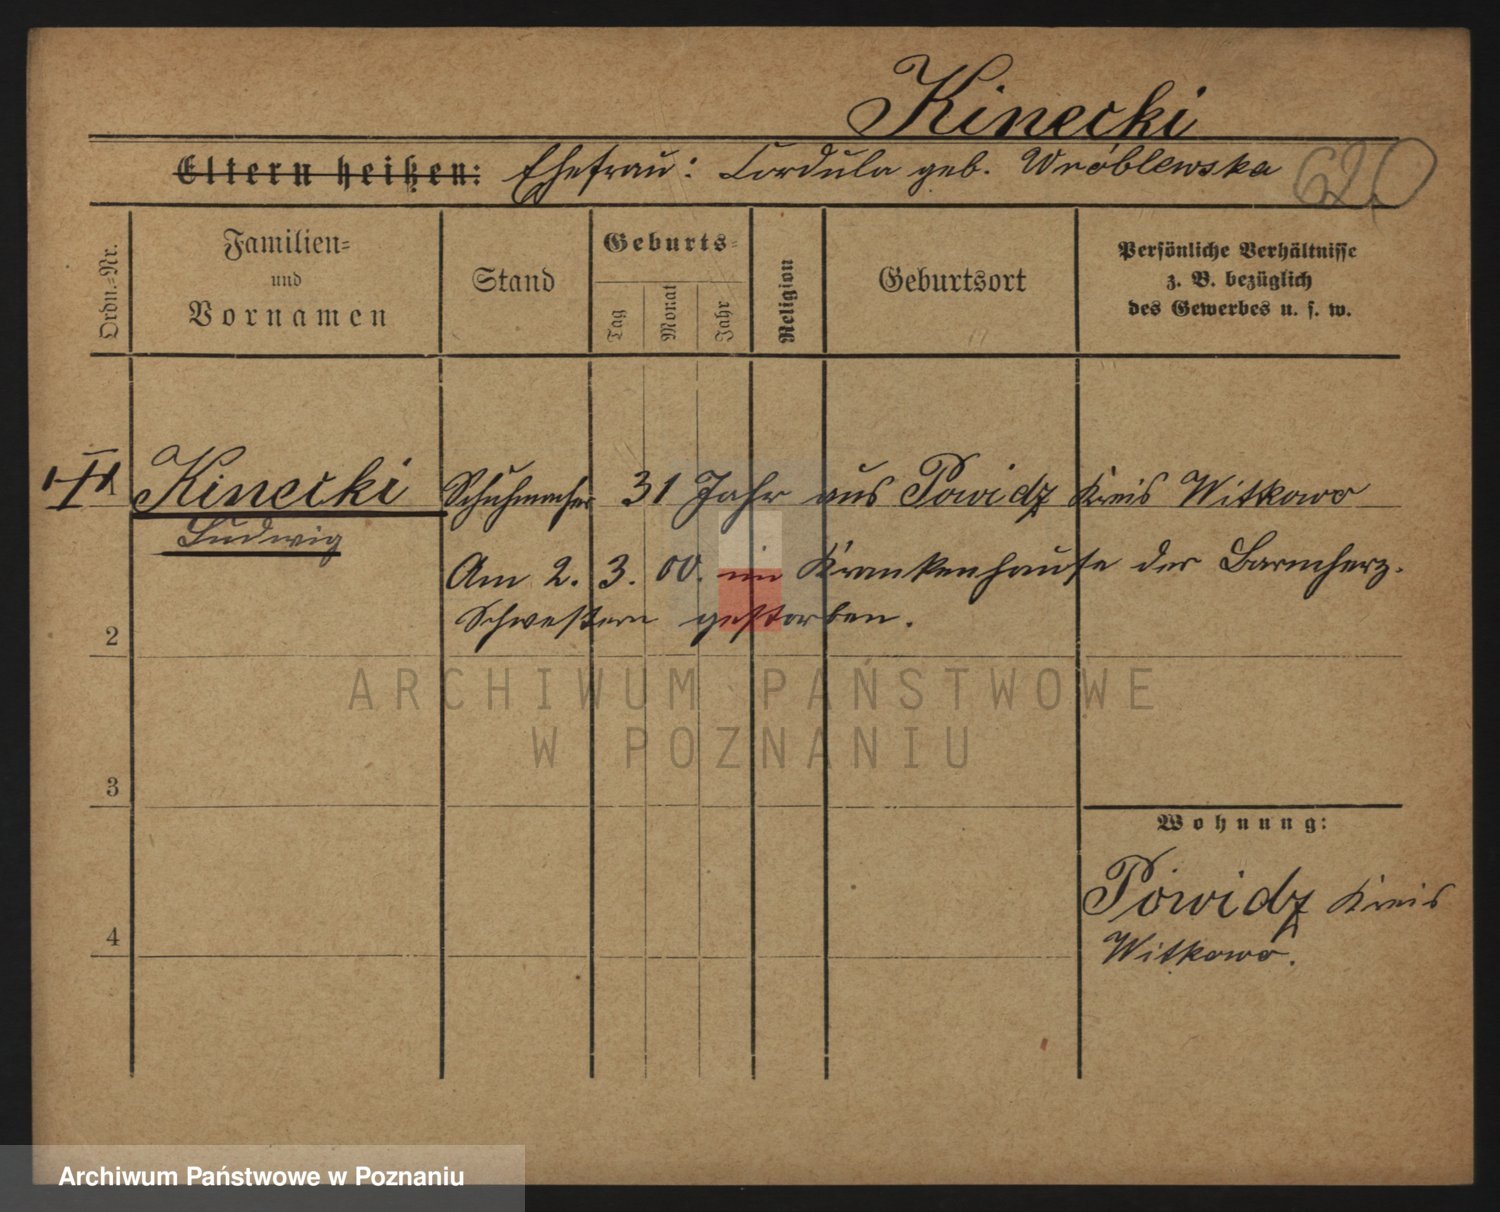 Kinecki
Eltern heißen: Ehefrau: Cordula geb. Wróblewska 620
Ordn.-Nr.
Familien-
und
Vornamen
Stand
Geburts-
Tag
Monat
Jahr
Religion
Geburtsort
Persönliche Verhältnisse
z. B. bezüglich
des Gewerbes u. s. w.
Kinecki Schuhmacher 31 Jahr aus Powidz Kreis Witkowo
Ludwig
Am 2. 3. 00. im Krankenhause der Barmherz.
Schwestern gestorben.
2
ARCHIWUM PAŃSTWOWE
W POZNANIU
3
Wohnung:
Powidz Kreis
4
Witkowo.
Archiwum Państwowe w Poznaniu